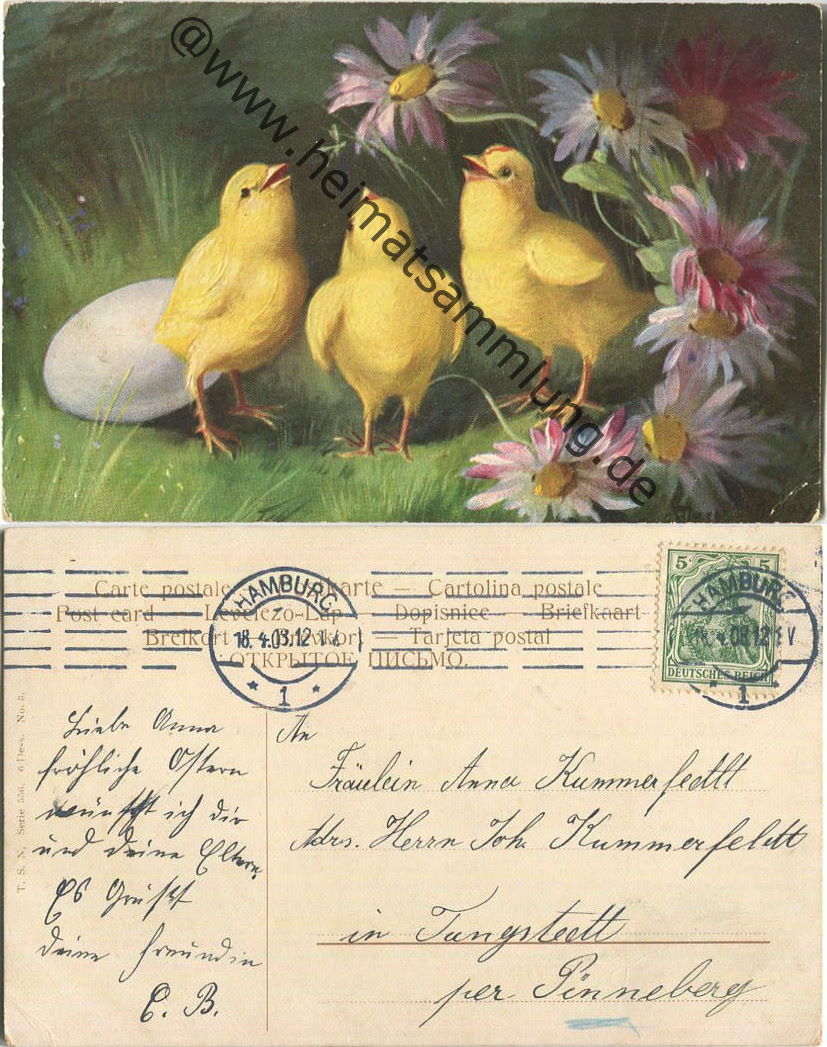 @www.heimatsammlung.de
Carte postale — Cartolina postale
Post card — Levelezö-Lap — Dopisnice — Briefkaart
Brefkort — Tarjeta postal
ОТКРЫТОЕ ПИСЬМО.
HAMBURG
1
5 5
DEUTSCHES REICH
HAMBURG
1
T. S. N. Serie 556.
Liebe Anna
fröhliche Ostern
wünscht ich dir
und deine Eltern.
Es Grüßt
deine Freundin
E. B.
An
Fräulein Anna Kummerfeldt
Adrs. Herrn Joh. Kummerfeldt
in Tangstedt
per Pinneberg